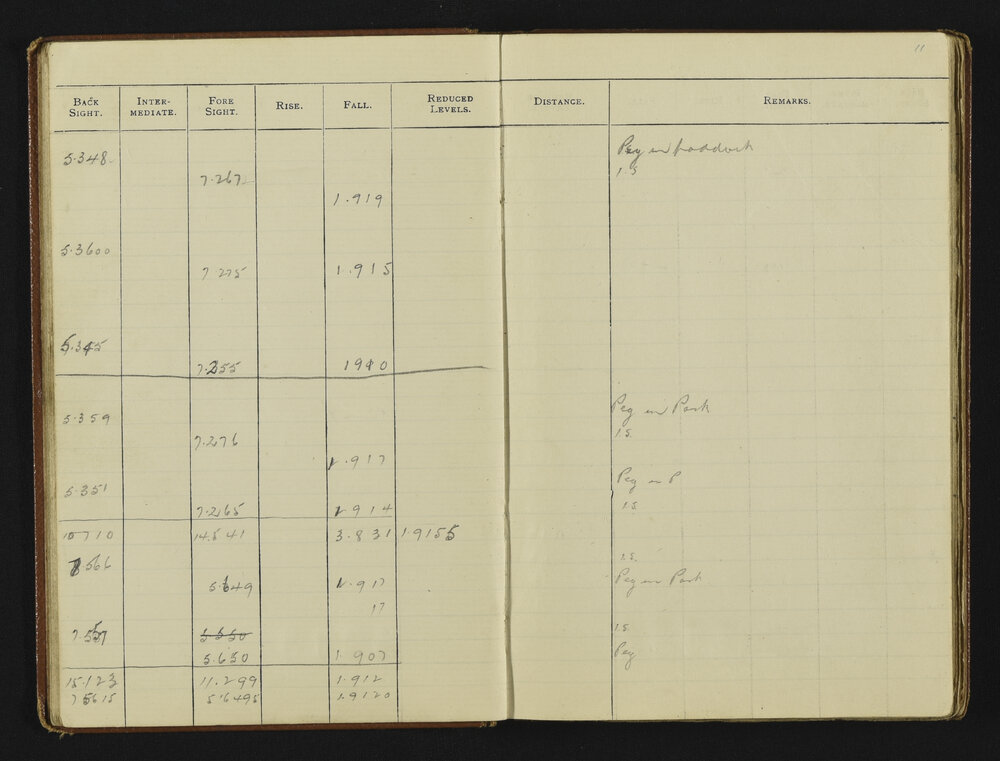 11
BACK SIGHT. INTER-MEDIATE. FORE SIGHT. RISE. FALL. REDUCED LEVELS. DISTANCE. REMARKS.
5.348 Peg in paddock
7.267 1.S
1.919
5.3600
7.275 1.915
5.345
7.255 1910
5.359 Peg in Park
7.276 1.S.
1.917
5.351 Peg in P
7.265 1.914 1.S.
10710 14.541 3.831 1.9155
7566 1.S.
5.649 1.917 Peg in Park
17
7.557 5.550 1.S.
5.650 1.907 Peg
15.123 11.299 1.912
75615 5.6495 1.9120